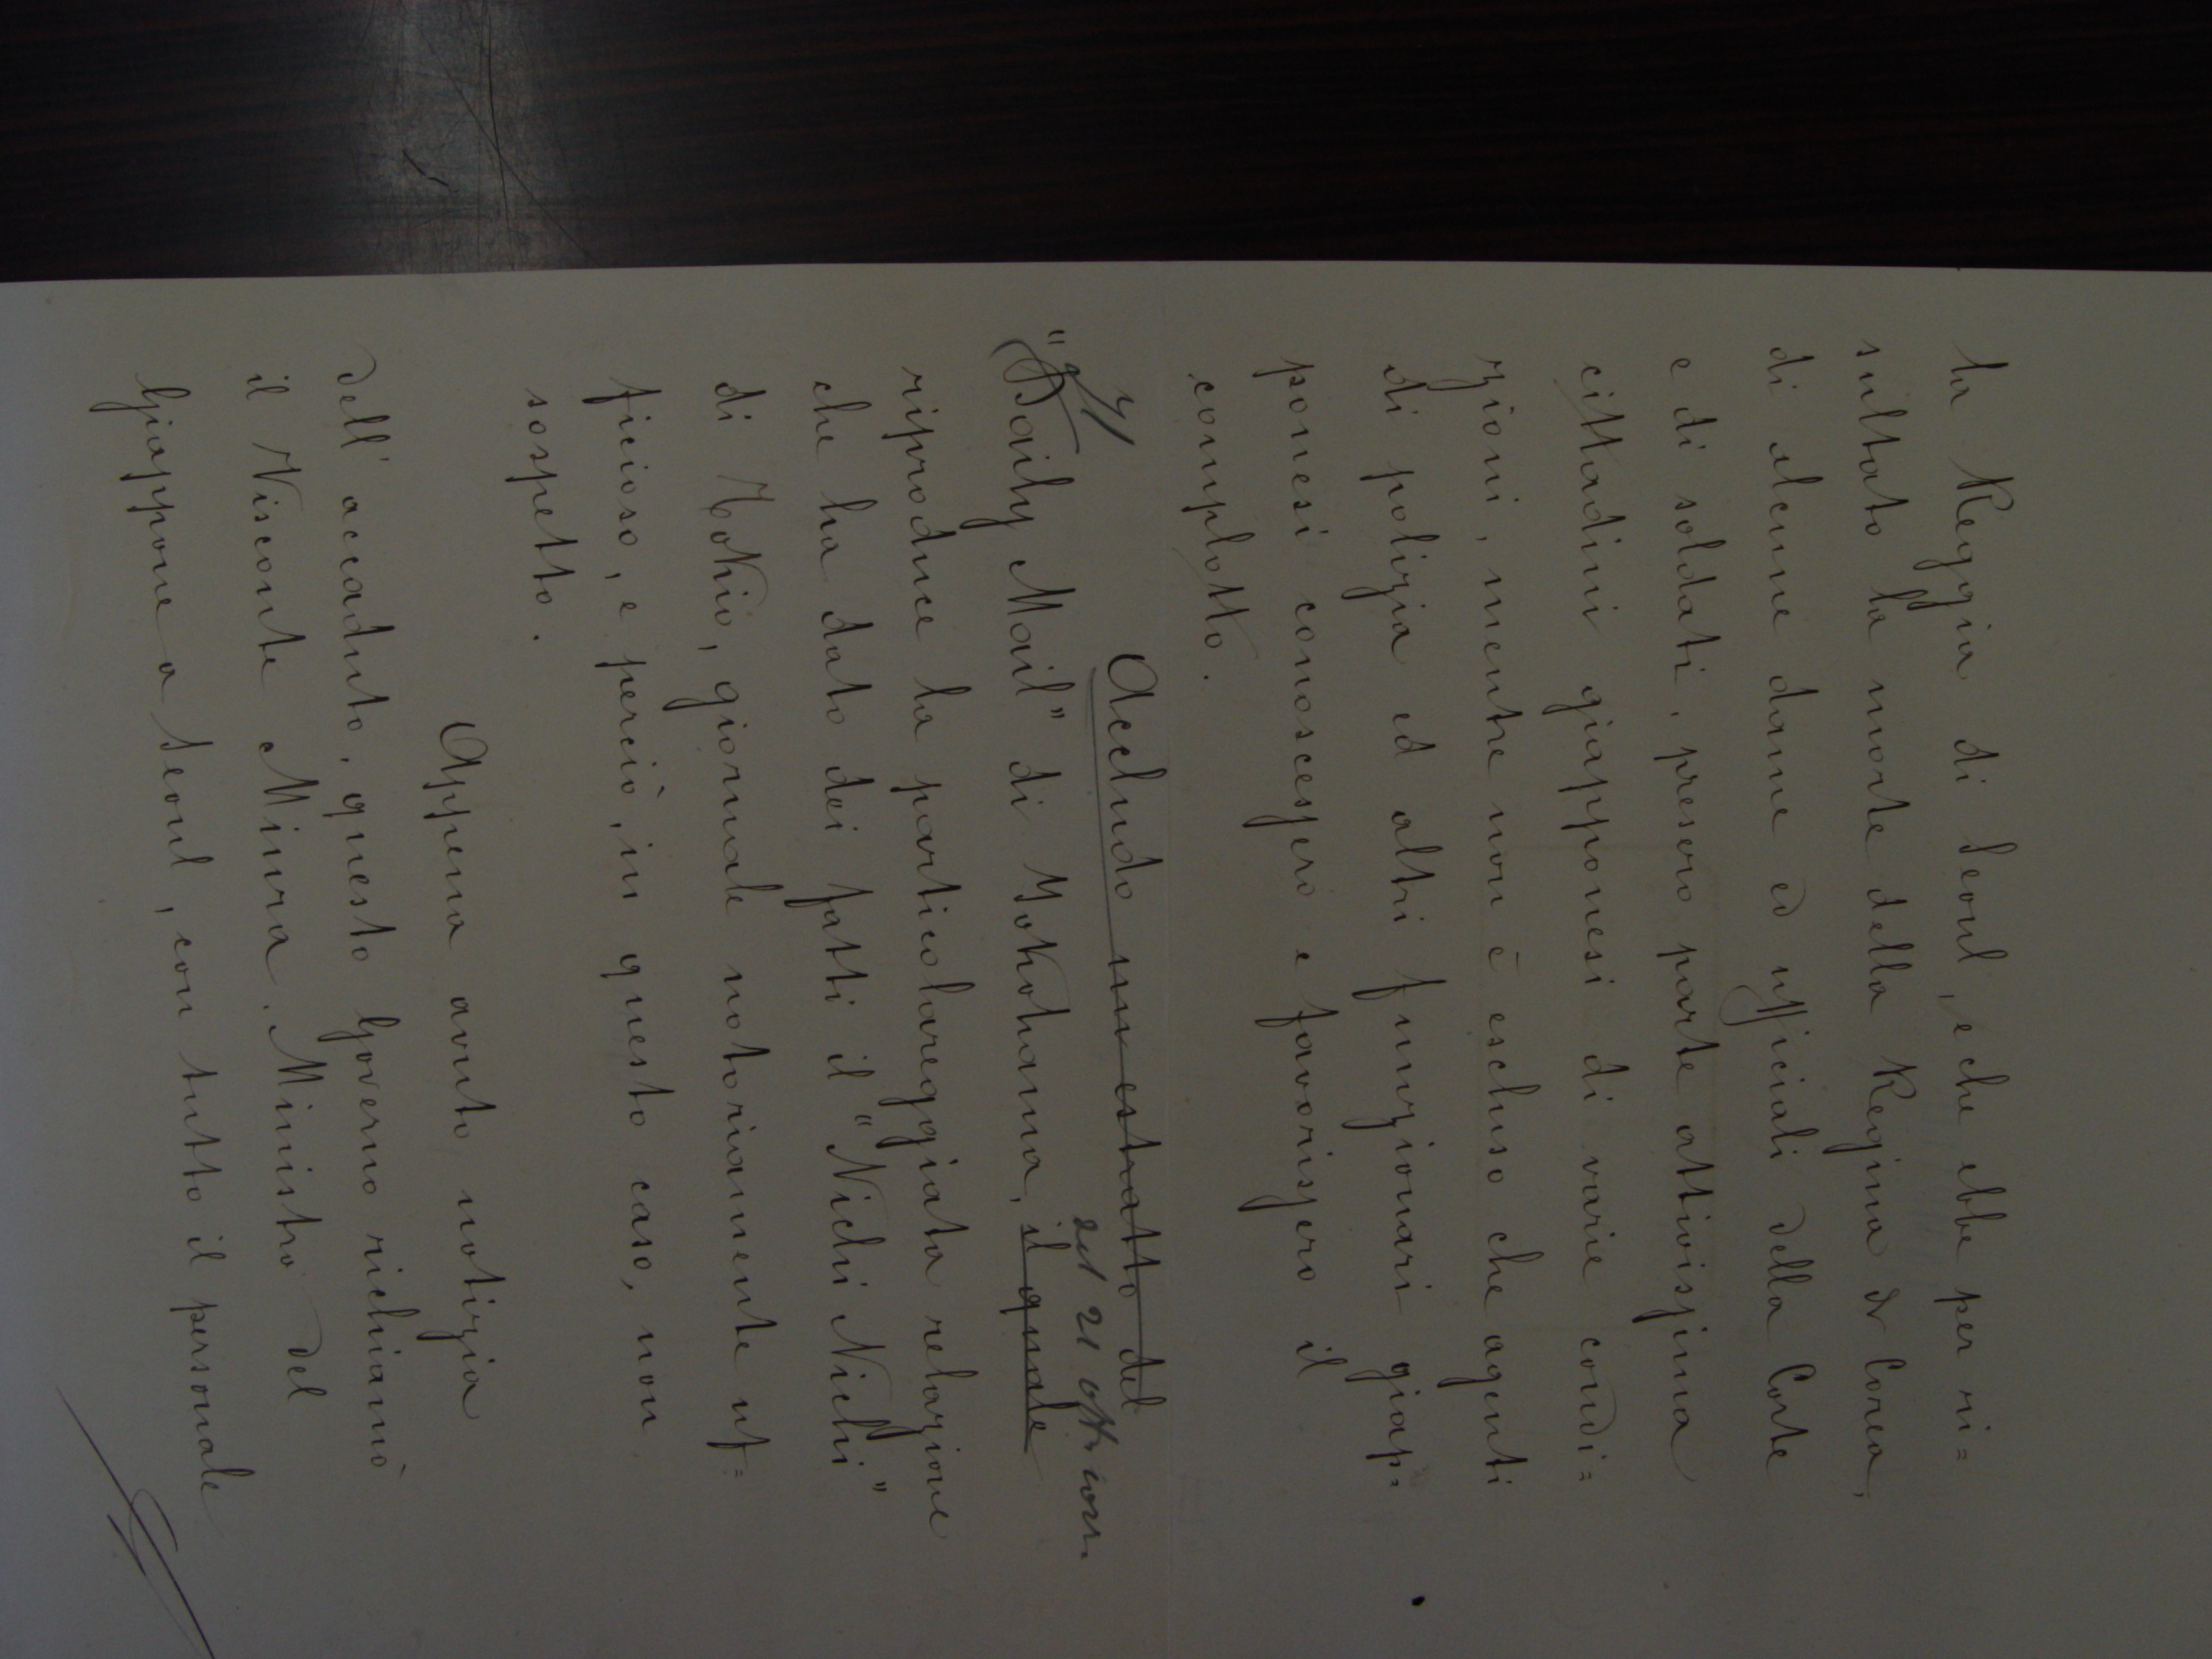 la Reggia di Seoul, e che ebbe per ri=
sultato la morte della Regina di Corea,
di alcune dame ed ufficiali della Corte
e di soldati, presero parte attivissima
cittadini giapponesi di varie condi=
zioni, mentre non è escluso che agenti
di polizia ed altri funzionari giap=
ponesi conoscessero e favorissero il
complotto.
Accludo un estratto del
del 21 ott. corr.
"Daily Mail" di Yokohama, il quale
riproduce la particolareggiata relazione
che ha dato dei fatti il "Nichi Nichi"
di Tokio, giornale notoriamente uf=
ficioso, e perciò, in questo caso, non
sospetto.
Appena avuto notizia
dell'accaduto, questo Governo richiamò
il Visconte Miura, Ministro del
Giappone a Seoul, con tutto il personale